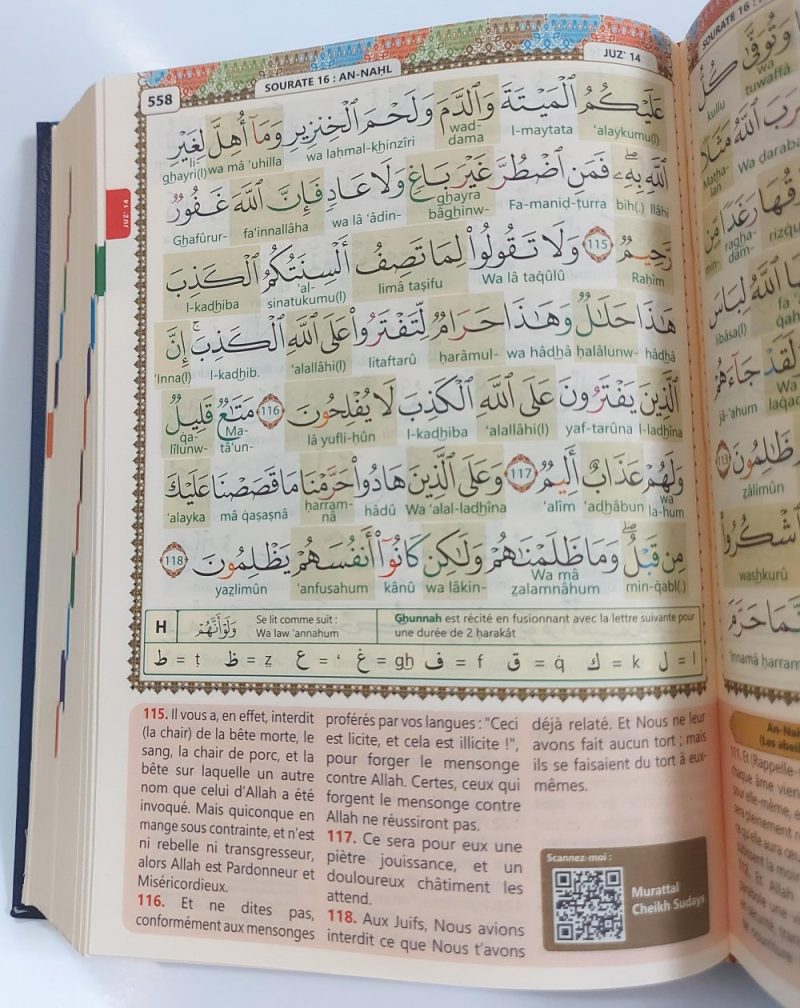 558
SOURATE 16 : AN-NAHL
JUZ' 14
JUZ' 14
عَلَيْكُمُ ٱلْمَيْتَةَ وَٱلدَّمَ وَلَحْمَ ٱلْخِنزِيرِ وَمَآ أُهِلَّ لِغَيْرِ
'alaykumu(l) l-maytata wad-dama wa laḥmal-khinzîri wa mâ 'uhilla li ghayri(l)
ٱللَّهِ بِهِۦۖ فَمَنِ ٱضْطُرَّ غَيْرَ بَاغٍ وَلَا عَادٍ فَإِنَّ ٱللَّهَ غَفُورٌ
llâhi bih(.) Fa-maniḍ-ṭurra ghayra bâghinw- wa lâ 'âdin- fa'innallâha Ghafûrur-
رَّحِيمٌ 115 وَلَا تَقُولُوا۟ لِمَا تَصِفُ أَلْسِنَتُكُمُ ٱلْكَذِبَ
Raḥîm Wa lâ taqûlû limâ taṣifu 'al-sinatukumu(l) l-kadhiba
هَـٰذَا حَلَـٰلٌ وَهَـٰذَا حَرَامٌ لِّتَفْتَرُوا۟ عَلَى ٱللَّهِ ٱلْكَذِبَۚ إِنَّ
hâdhâ ḥalâlunw- wa hâdhâ ḥarâmul- litaftarû 'alallâhi(l) l-kadhib. 'Inna(l)
ٱلَّذِينَ يَفْتَرُونَ عَلَى ٱللَّهِ ٱلْكَذِبَ لَا يُفْلِحُونَ 116 مَتَـٰعٌ قَلِيلٌ
l-ladhîna yaf-tarûna 'alallâhi(l) l-kadhiba lâ yufli-ḥûn Ma-tâ'un- qa-lîlunw-
وَلَهُمْ عَذَابٌ أَلِيمٌ 117 وَعَلَى ٱلَّذِينَ هَادُوا۟ حَرَّمْنَا مَا قَصَصْنَا عَلَيْكَ
wa la-hum 'adhâbun 'alîm Wa 'alal-ladhîna hâdû ḥarram-nâ mâ qaṣaṣnâ 'alayka
مِن قَبْلُۖ وَمَا ظَلَمْنَـٰهُمْ وَلَـٰكِن كَانُوٓا۟ أَنفُسَهُمْ يَظْلِمُونَ 118
min-qabl(.) Wa mâ ẓalamnâhum wa lâkin- kânû 'anfusahum yaẓlimûn
H وَلَوْ أَنَّهُمْ Se lit comme suit : Wa law 'annahum
Ghunnah est récité en fusionnant avec la lettre suivante pour
une durée de 2 ḥarakât
ط = ṭ ظ = ẓ ع = ‘ غ = gh ف = f ق = q̇ ك = k ل = l
115. Il vous a, en effet, interdit
(la chair) de la bête morte, le
sang, la chair de porc, et la
bête sur laquelle un autre
nom que celui d'Allah a été
invoqué. Mais quiconque en
mange sous contrainte, et n'est
ni rebelle ni transgresseur,
alors Allah est Pardonneur et
Miséricordieux.
116. Et ne dites pas,
conformément aux mensonges
proférés par vos langues : "Ceci
est licite, et cela est illicite !",
pour forger le mensonge
contre Allah. Certes, ceux qui
forgent le mensonge contre
Allah ne réussiront pas.
117. Ce sera pour eux une
piètre jouissance, et un
douloureux châtiment les
attend.
118. Aux Juifs, Nous avions
interdit ce que Nous t'avons
déjà relaté. Et Nous ne leur
avons fait aucun tort ; mais
ils se faisaient du tort à eux-
mêmes.
Scannez-moi :
Murattal
Cheikh Sudays
SOURATE 16
kullu
wa tuwaffâ
Wa ḍaraba
rizqu
libâsa(l)
jâ-'ahum
ẓâlimûn
washkurû
'innamâ ḥarram